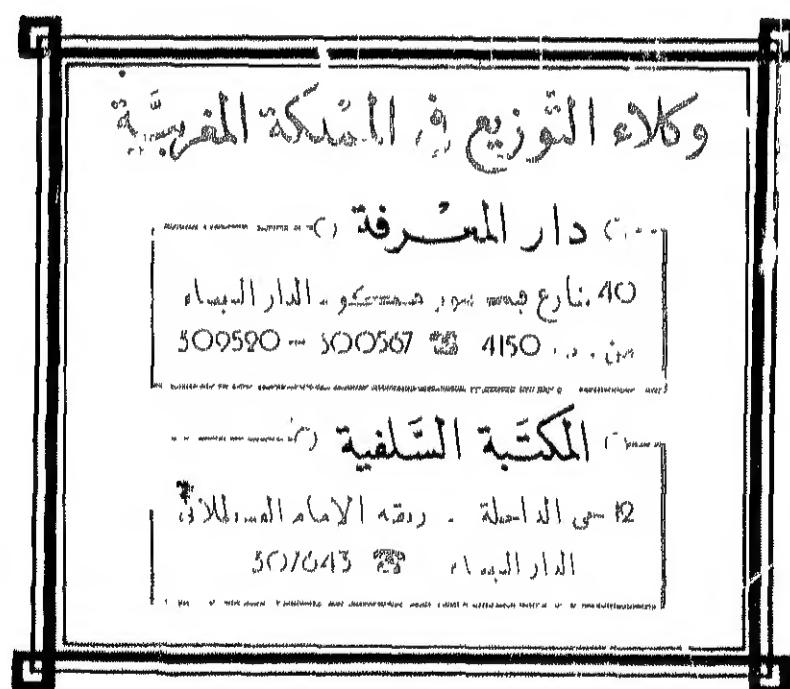 وكلاء التّوزيع في المملكة المغربيَّة
دار المعْرفة
40 شارع فيكتور هيكو - الدار البيضاء
ص. ب. 4150 ☎ 300567 - 309520
المكتَبة السَّلفية
12 حي الداخلة - زنقة الامام القسطلاني
الدار البيضاء ☎ 307643